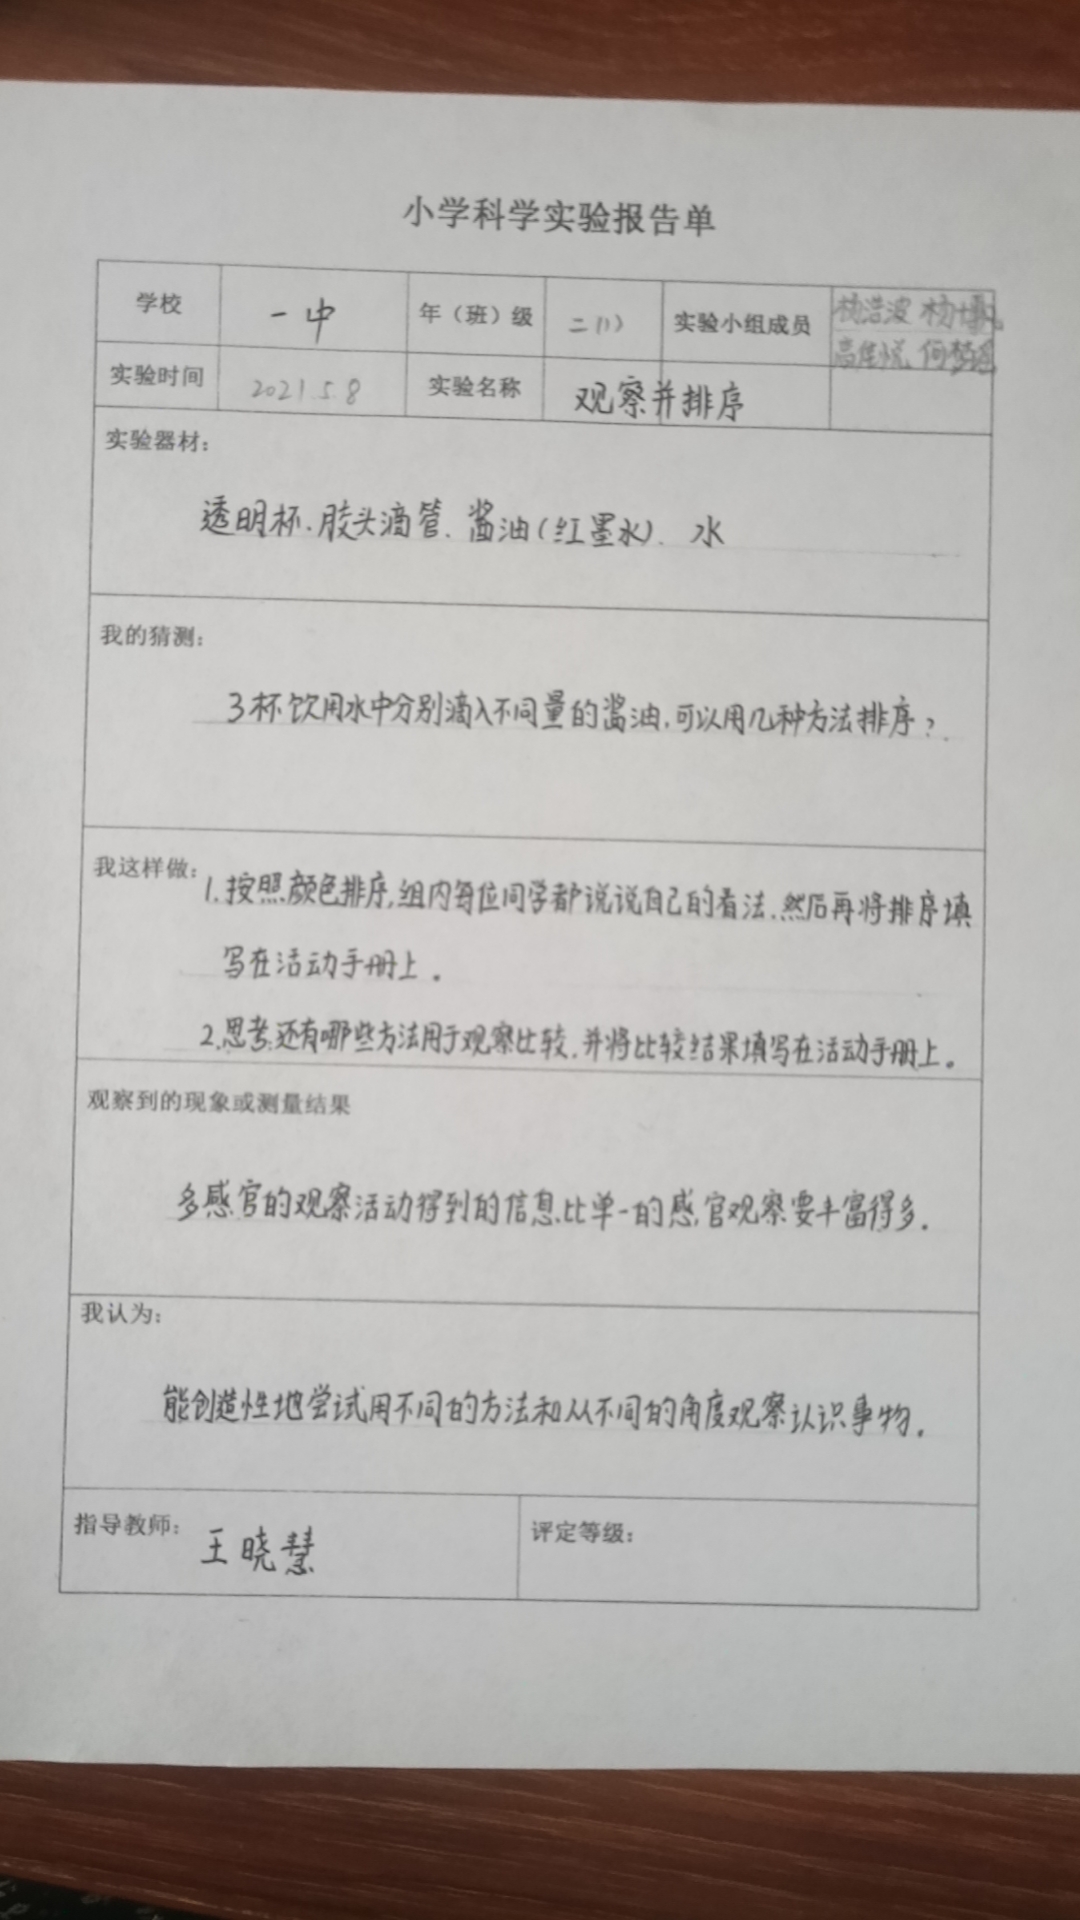 小学科学实验报告单
学校 一中 年（班）级 二(1) 实验小组成员 杨浩波 杨博
高佳悦 何梦瑶
实验时间 2021.5.8 实验名称 观察并排序
实验器材：
透明杯、胶头滴管、酱油(红墨水)、水
我的猜测：
3杯饮用水中分别滴入不同量的酱油,可以用几种方法排序?
我这样做：1.按照颜色排序,组内每位同学都说说自己的看法.然后再将排序填
写在活动手册上。
2.思考还有哪些方法用于观察比较.并将比较结果填写在活动手册上。
观察到的现象或测量结果
多感官的观察活动得到的信息比单一的感官观察要丰富得多.
我认为：
能创造性地尝试用不同的方法和从不同的角度观察认识事物.
指导教师： 王晓慧 评定等级：